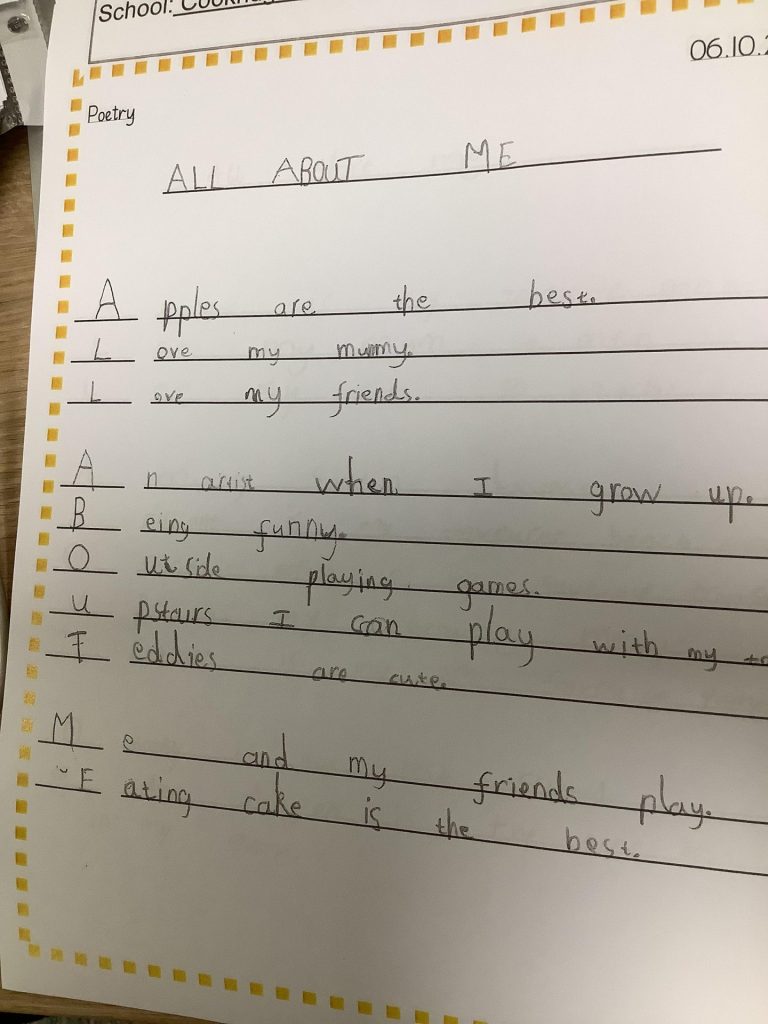 School:
06.10.
Poetry
ALL ABOUT ME
Apples are the best.
Love my mummy.
Love my friends.
An artist when I grow up.
Being funny.
Outside playing games.
Upstairs I can play with my
Teddies are cute.
Me and my friends play.
Eating cake is the best.